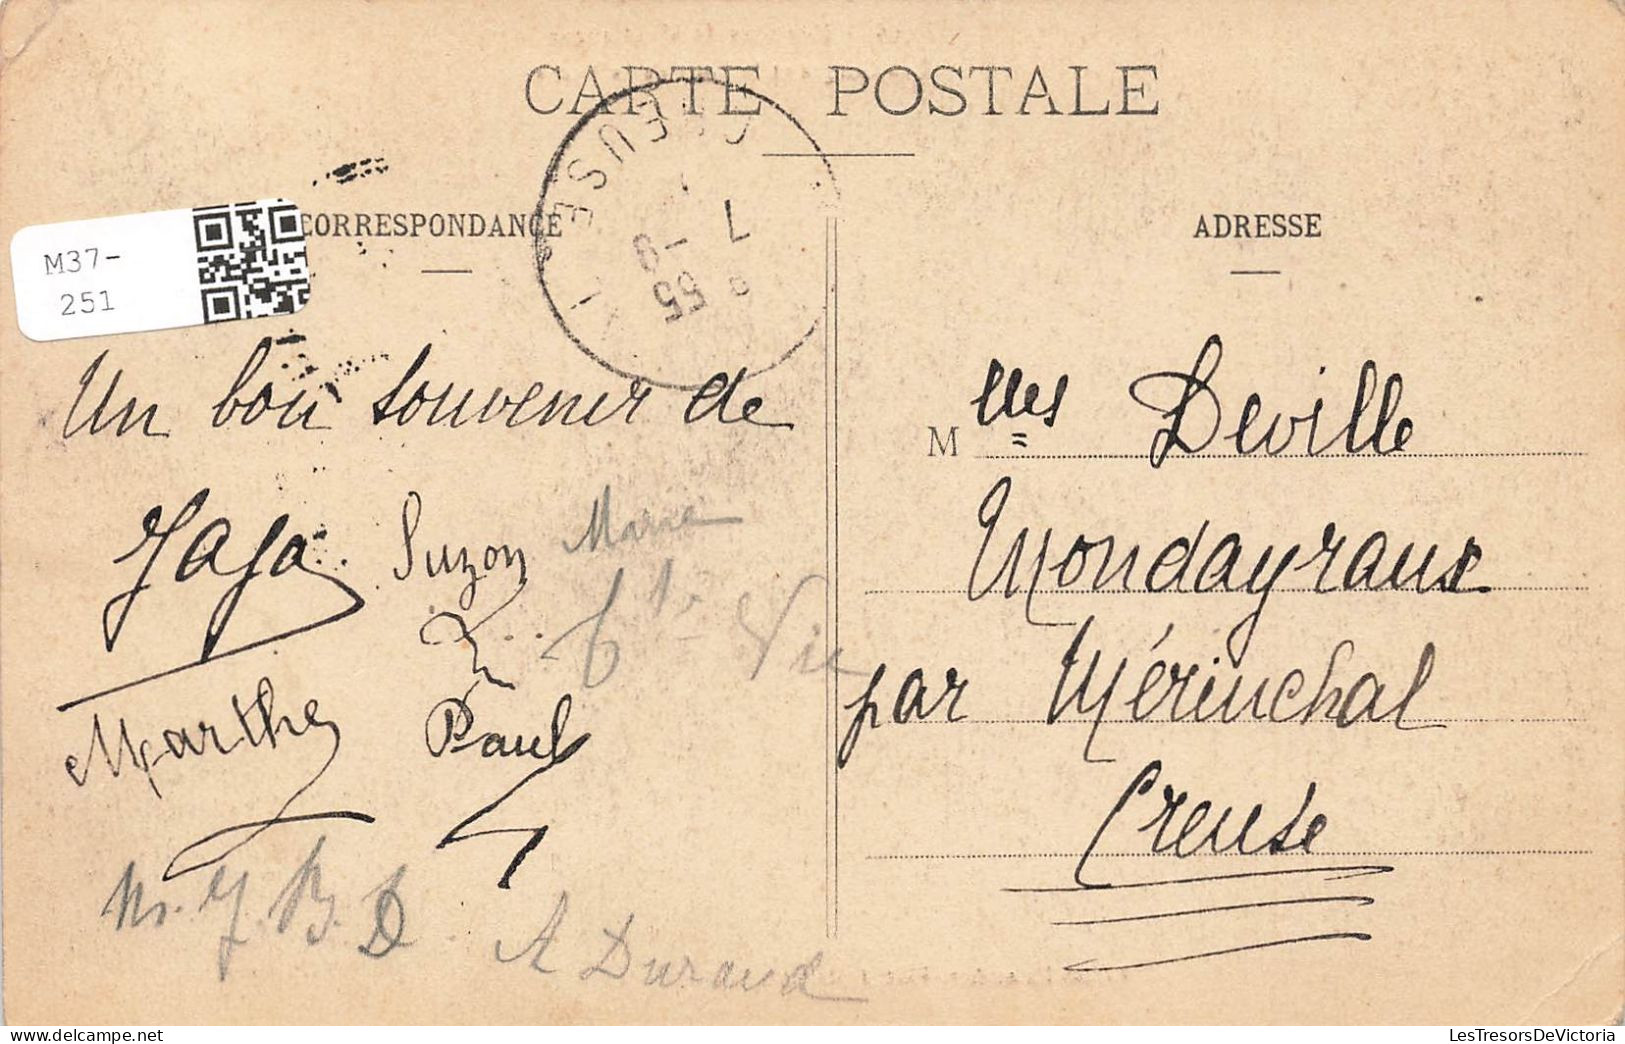 CARTE POSTALE
CORRESPONDANCE
ADRESSE
M37-
251
CREUSE
7 -9
55
Un bon souvenir de
Jaja Suzon Marie
Marthe Paul
M. J. B. D. A Durand
M elles Deville
Mondayraux
par Mérinchal
Creuse
LesTresorsDeVictoria